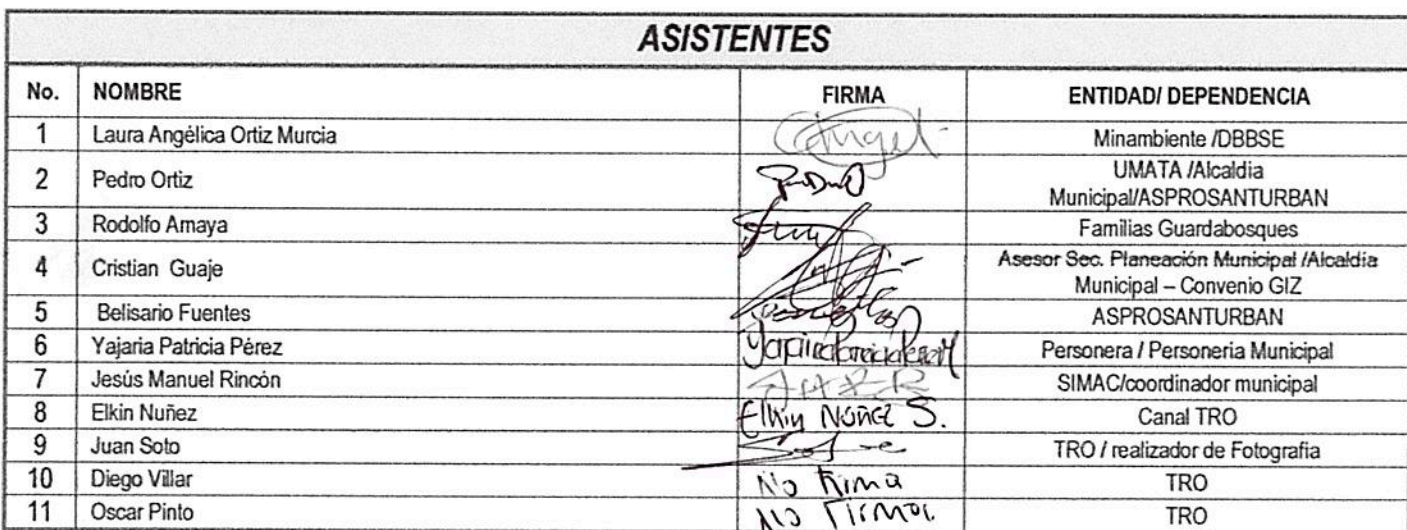 ASISTENTES
No. NOMBRE FIRMA ENTIDAD/ DEPENDENCIA
1 Laura Angélica Ortiz Murcia Angel Minambiente /DBBSE
2 Pedro Ortiz UMATA /Alcaldia
Municipal/ASPROSANTURBAN
3 Rodolfo Amaya Familias Guardabosques
4 Cristian Guaje Asesor Sec. Planeación Municipal /Alcaldía
Municipal – Convenio GIZ
5 Belisario Fuentes ASPROSANTURBAN
6 Yajaria Patricia Pérez Personera / Personería Municipal
7 Jesús Manuel Rincón SIMAC/coordinador municipal
8 Elkin Nuñez Elkin Nuñez S. Canal TRO
9 Juan Soto TRO / realizador de Fotografia
10 Diego Villar No firma TRO
11 Oscar Pinto No Firma. TRO